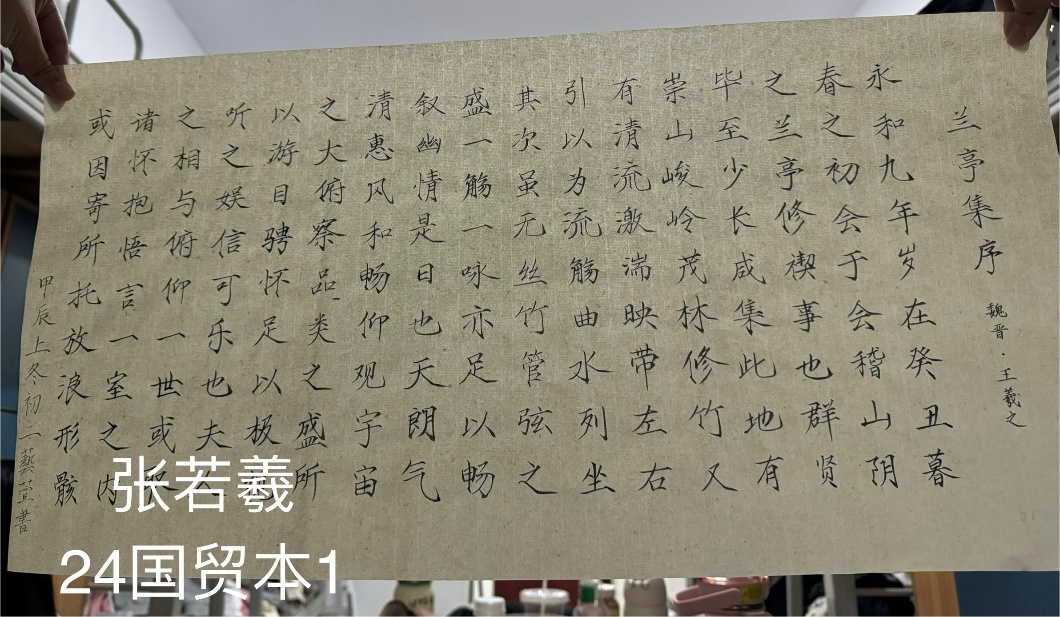 兰亭集序
魏晋·王羲之
永和九年岁在癸丑暮
春之初会于会稽山阴
之兰亭修禊事也群贤
毕至少长咸集此地有
崇山峻岭茂林修竹又
有清流激湍映带左右
引以为流觞曲水列坐
其次虽无丝竹管弦之
盛一觞一咏亦足以畅
叙幽情是日也天朗气
清惠风和畅仰观宇宙
之大俯察品类之盛所
以游目骋怀足以极
听之娱信可乐也夫
之相与俯仰一世或
诸怀抱悟言一室之内
或因寄所托放浪形骸
甲辰上冬初二藝萱書
张若羲
24国贸本1